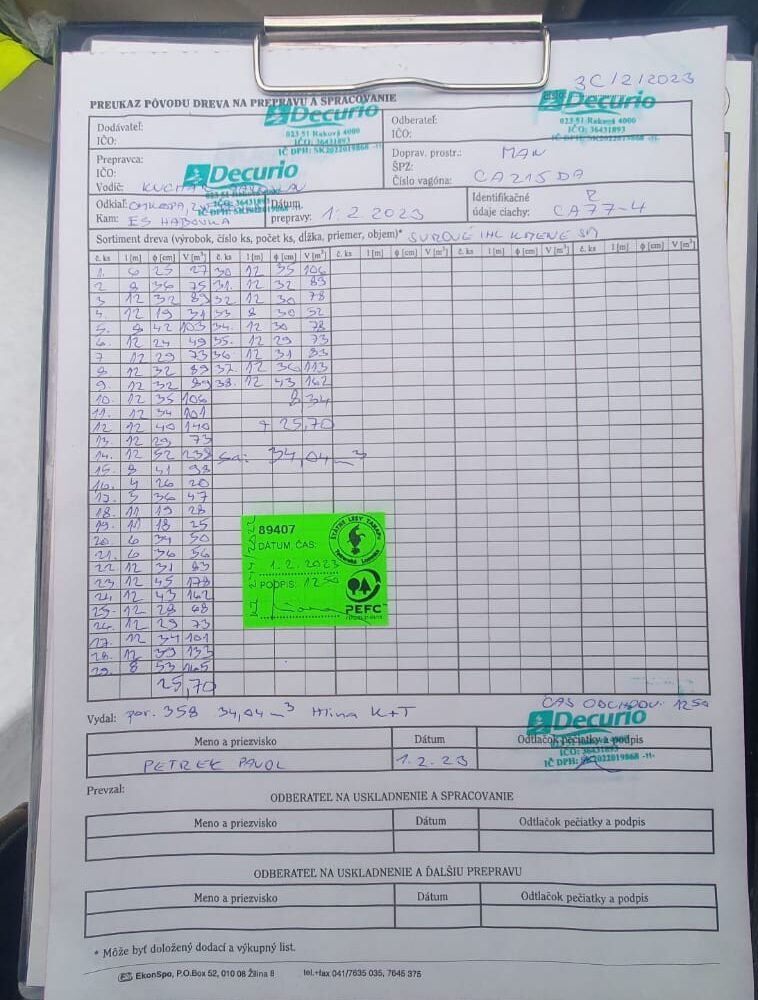 3C/2/2023
PREUKAZ PÔVODU DREVA NA PREPRAVU A SPRACOVANIE
Decurio
023 51 Raková 4000
IČO: 36431893
IČ DPH: SK2022019868 -11-
Decurio
023 51 Raková 4000
IČO: 36431893
IČ DPH: SK2022019868 -11-
Dodávateľ:
IČO:
Odberateľ:
IČO:
Prepravca:
IČO:
Vodič:
Decurio
Doprav. prostr.: MAN
ŠPZ:
Číslo vagóna: CA215DA
Odkiaľ:
Kam: ES HABOVKA
Dátum
prepravy: 1.2.2023
Identifikačné
údaje ciachy: CA77-4
Sortiment dreva (výrobok, číslo ks, počet ks, dĺžka, priemer, objem)* SUROVÉ IHL KMENE SM
č. ks l [m] ϕ [cm] V [m³] č. ks l [m] ϕ [cm] V [m³] č. ks l [m] ϕ [cm] V [m³] č. ks l [m] ϕ [cm] V [m³] č. ks l [m] ϕ [cm] V [m³]
1. 6 25 27 30 12 35 106
2 8 36 75 31. 12 32 89
3 12 32 89 32 12 30 78
4. 12 19 31 33 8 30 52
5. 8 42 103 34. 12 30 78
6. 12 24 49 35. 12 29 73
7 12 29 73 36 12 31 83
8 12 32 89 37 12 36 113
9. 12 32 89 38. 12 43 162
10. 12 35 106 8 34
11. 12 34 101
12 12 40 140 + 25,70
13. 12 29 73
14. 12 52 238 Sa: 34,04 m³
15. 8 41 98
16. 4 26 20
17. 5 36 47
18. 11 19 28
19. 11 18 25
20. 6 34 50
21. 6 36 56
22 12 31 83
23 12 45 178
24. 12 43 162
25. 12 28 68
26. 12 29 73
27. 12 34 101
28. 12 39 133
29. 8 53 165
25,70
89407
DÁTUM ČAS:
1.2.2023
PODPIS: 12 50
ŠTÁTNE LESY TANAPu
Tatranská Lomnica
PEFC
ČAS ODCHODU: 12 50
Vydal: por. 358 34,04 m³ Hlina K+T
Decurio
IČO: 36431893
IČ DPH: SK2022019868 -11-
Meno a priezvisko Dátum Odtlačok pečiatky a podpis
PETREK PAVOL 1.2.23
Prevzal:
ODBERATEĽ NA USKLADNENIE A SPRACOVANIE
Meno a priezvisko Dátum Odtlačok pečiatky a podpis
ODBERATEĽ NA USKLADNENIE A ĎALŠIU PREPRAVU
Meno a priezvisko Dátum Odtlačok pečiatky a podpis
* Môže byť doložený dodací a výkupný list.
EkonSpo, P.O.Box 52, 010 08 Žilina 8 tel.+fax 041/7635 035, 7645 376